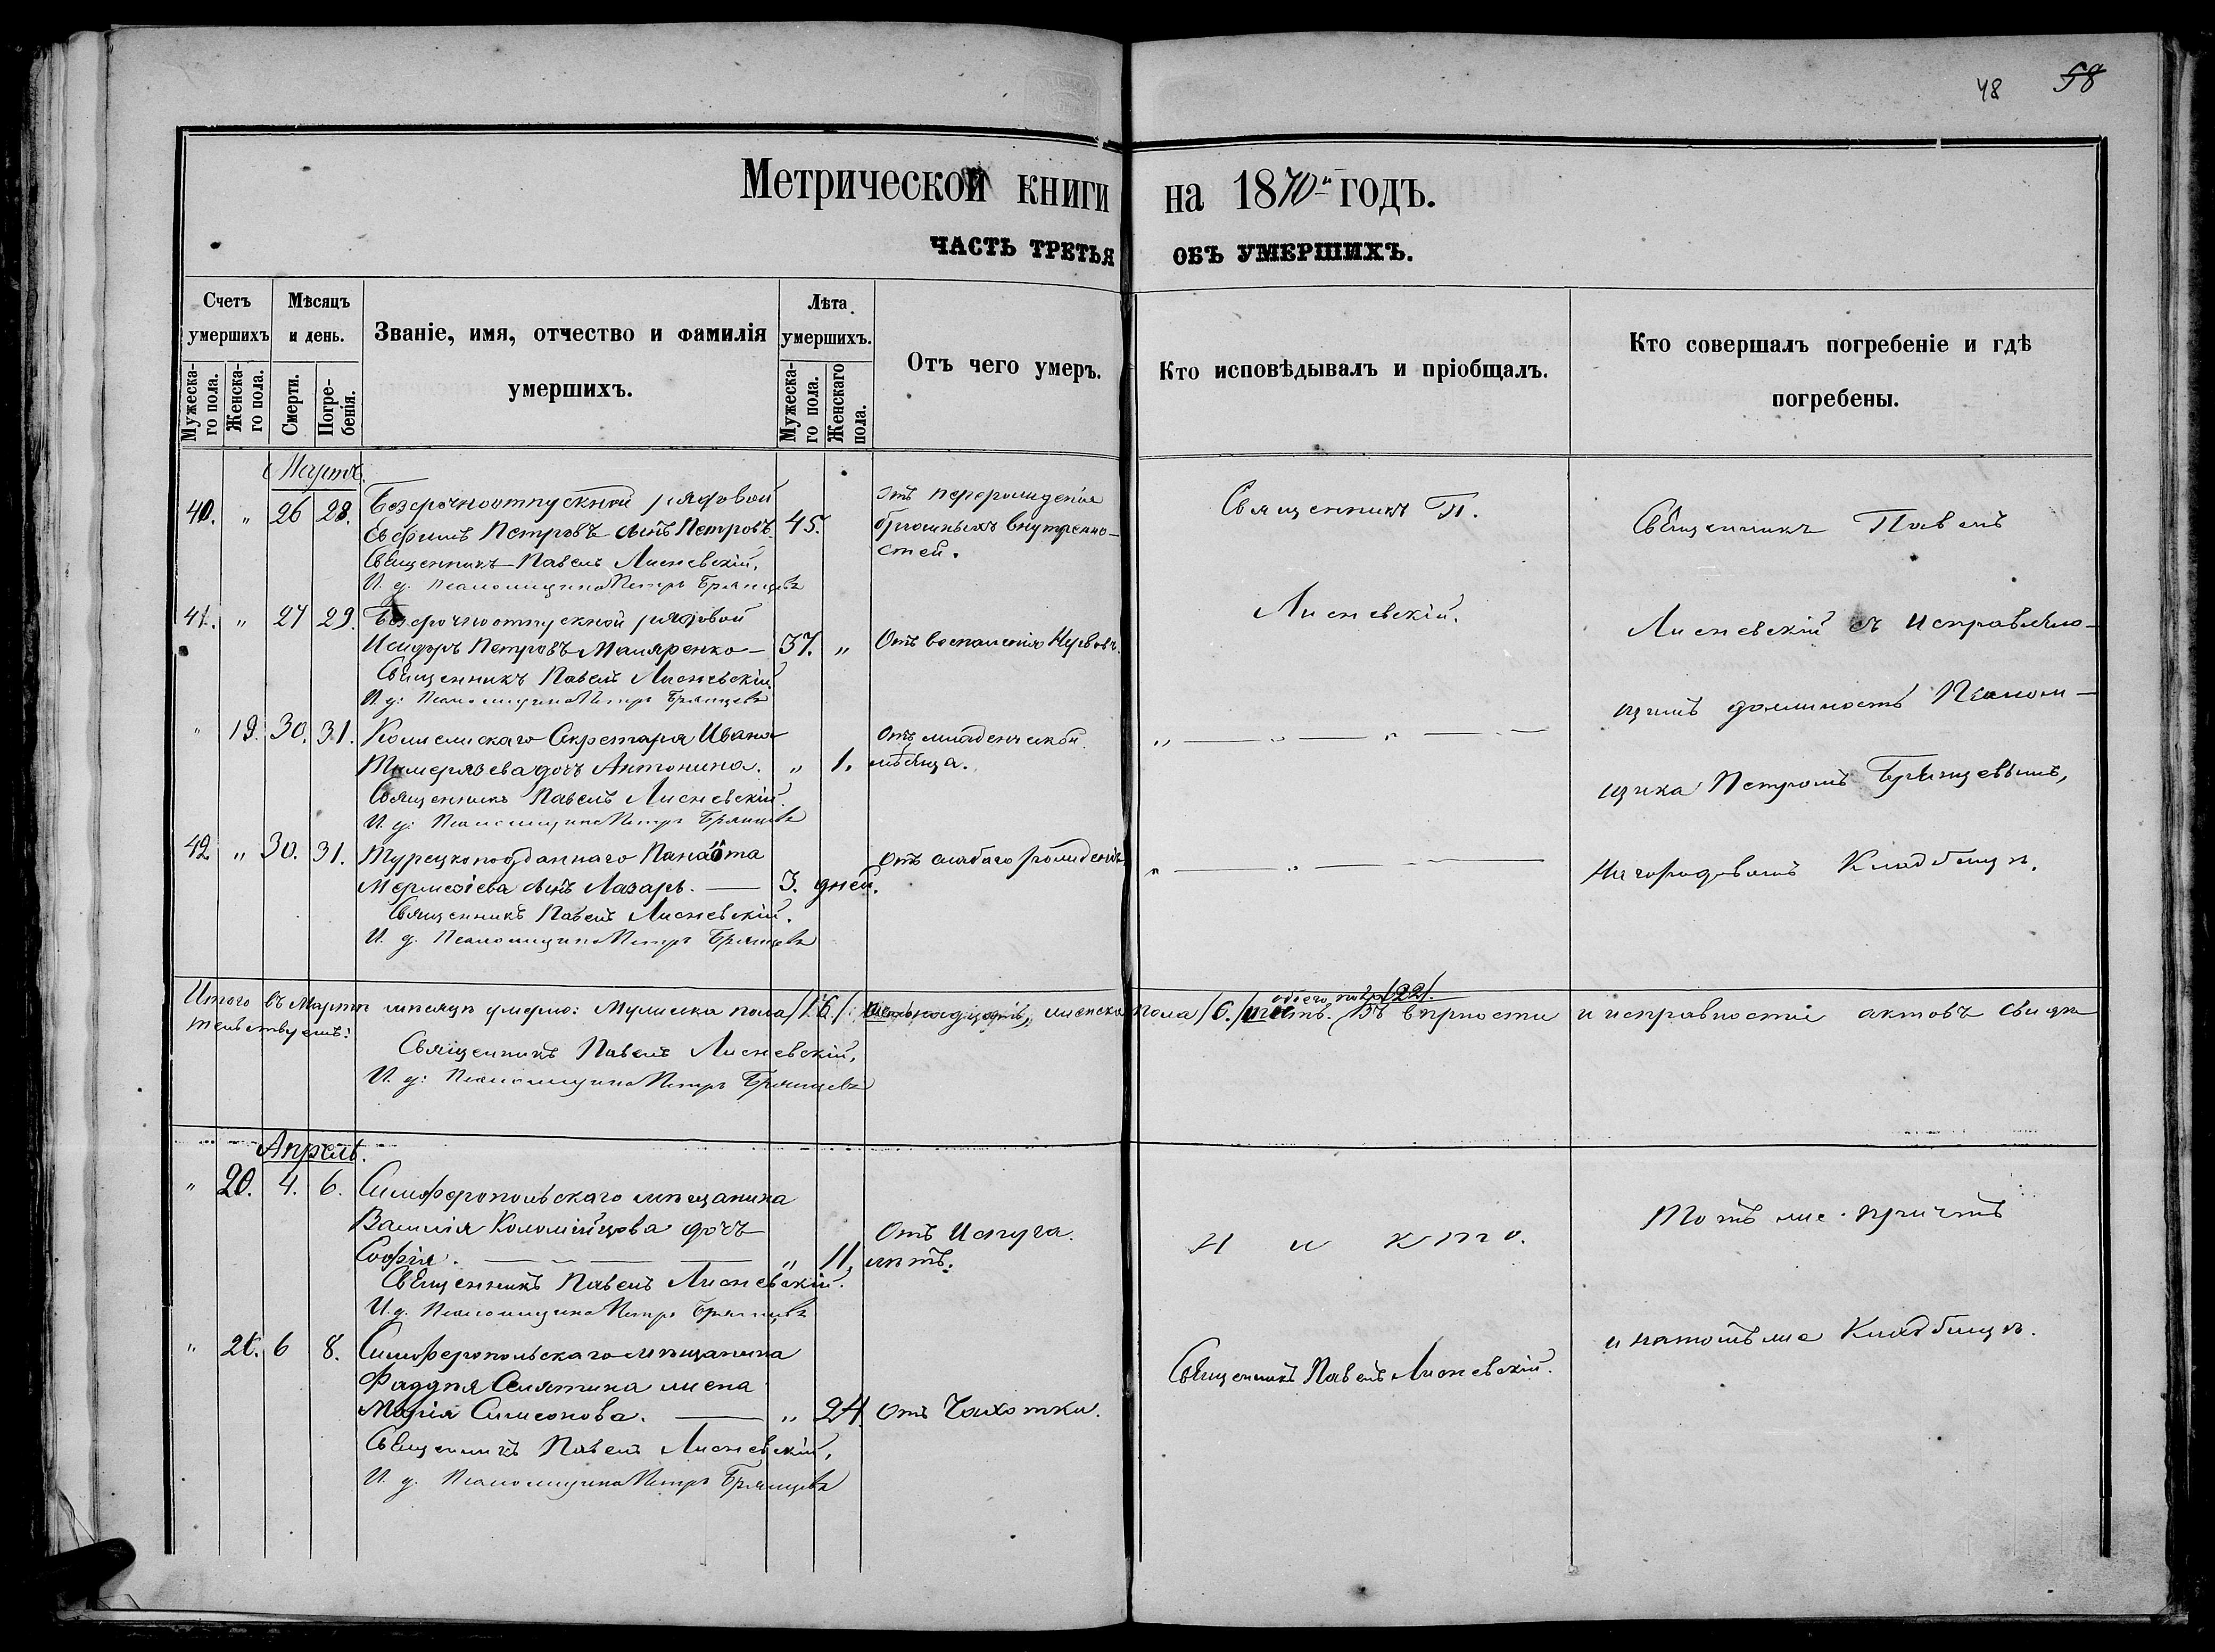 48 58
Метрической книги на 1870й годъ.
ЧАСТЬ ТРЕТЬЯ ОБЪ УМЕРШИХЪ.
Счетъ умершихъ
Мужескаго пола.
Женскаго пола.
Мѣсяцъ и день.
Смерти.
Погребенія.
Званіе, имя, отчество и фамилія
умершихъ.
Лѣта умершихъ.
Мужескаго пола.
Женскаго пола.
Отъ чего умеръ.
Кто исповѣдывалъ и пріобщалъ.
Кто совершалъ погребеніе и гдѣ
погребены.
Мартъ.
40. " 26 28. Безсрочноотпускной рядовой
Евфимъ Петровъ сынъ Петровъ. 45.
отъ перерожденія
брюшныхъ внутренно-
стей.
Священникъ П.
Священникъ Павелъ
Священникъ Павелъ Лисневскій,
И. д. Псаломщика Петръ Брянцевъ
41. " 27 29. Безсрочноотпускной рядовой
Исидоръ Петровъ Маляренко — 37. " Отъ воспаленія Нервовъ.
Лисневскій.
Лисневскій съ исправляю-
Священникъ Павелъ Лисневскій
И. д: Псаломщика Петръ Брянцевъ
щимъ должность Псалом-
" 19. 30. 31. Коллежскаго Секретаря Ивана
дочь Антонина. " 1.
отъ младенческой.
щика Петромъ Брянцевымъ,
Священникъ Павелъ Лисневскій.
И. д: Псаломщика Петръ Брянцевъ
42 " 30. 31. Турецкоподданнаго Панаіота
сынъ Лазарь. — 3. дней.
Отъ слабаго рожденія
На городовомъ Кладбищѣ.
Священникъ Павелъ Лисневскій.
И. д. Псаломщика Петръ Брянцевъ
обоего пола /22/.
Итого въ Мартѣ мѣсяцѣ умерло: Мужеска пола /16./: шестнадцать, женска пола /6./ шесть. Въ вѣрности и исправности актовъ свидѣ
тельствуемъ:
Священникъ Павелъ Лисневскій,
И. д: Псаломщика Петръ Брянцевъ
Апрель.
" 20. 4. 6. Симферопольскаго мѣщанина
Василія Коломійцова дочь
Софія. — " 11, лѣтъ.
Отъ Испуга.
Никто.
Тотъ же причтъ
Священникъ Павелъ Лисневскій.
И. д. Псаломщика Петръ Брянцевъ
" 21. 6 8. Симферопольскаго мѣщанина
Фаддѣя Селятина жена
Марія Симеонова. — " 24. отъ Чахотки.
Священникъ Павелъ Лисневскій.
и натомъже Кладбищѣ.
Священникъ Павелъ Лисневскій,
И. д. Псаломщика Петръ Брянцевъ